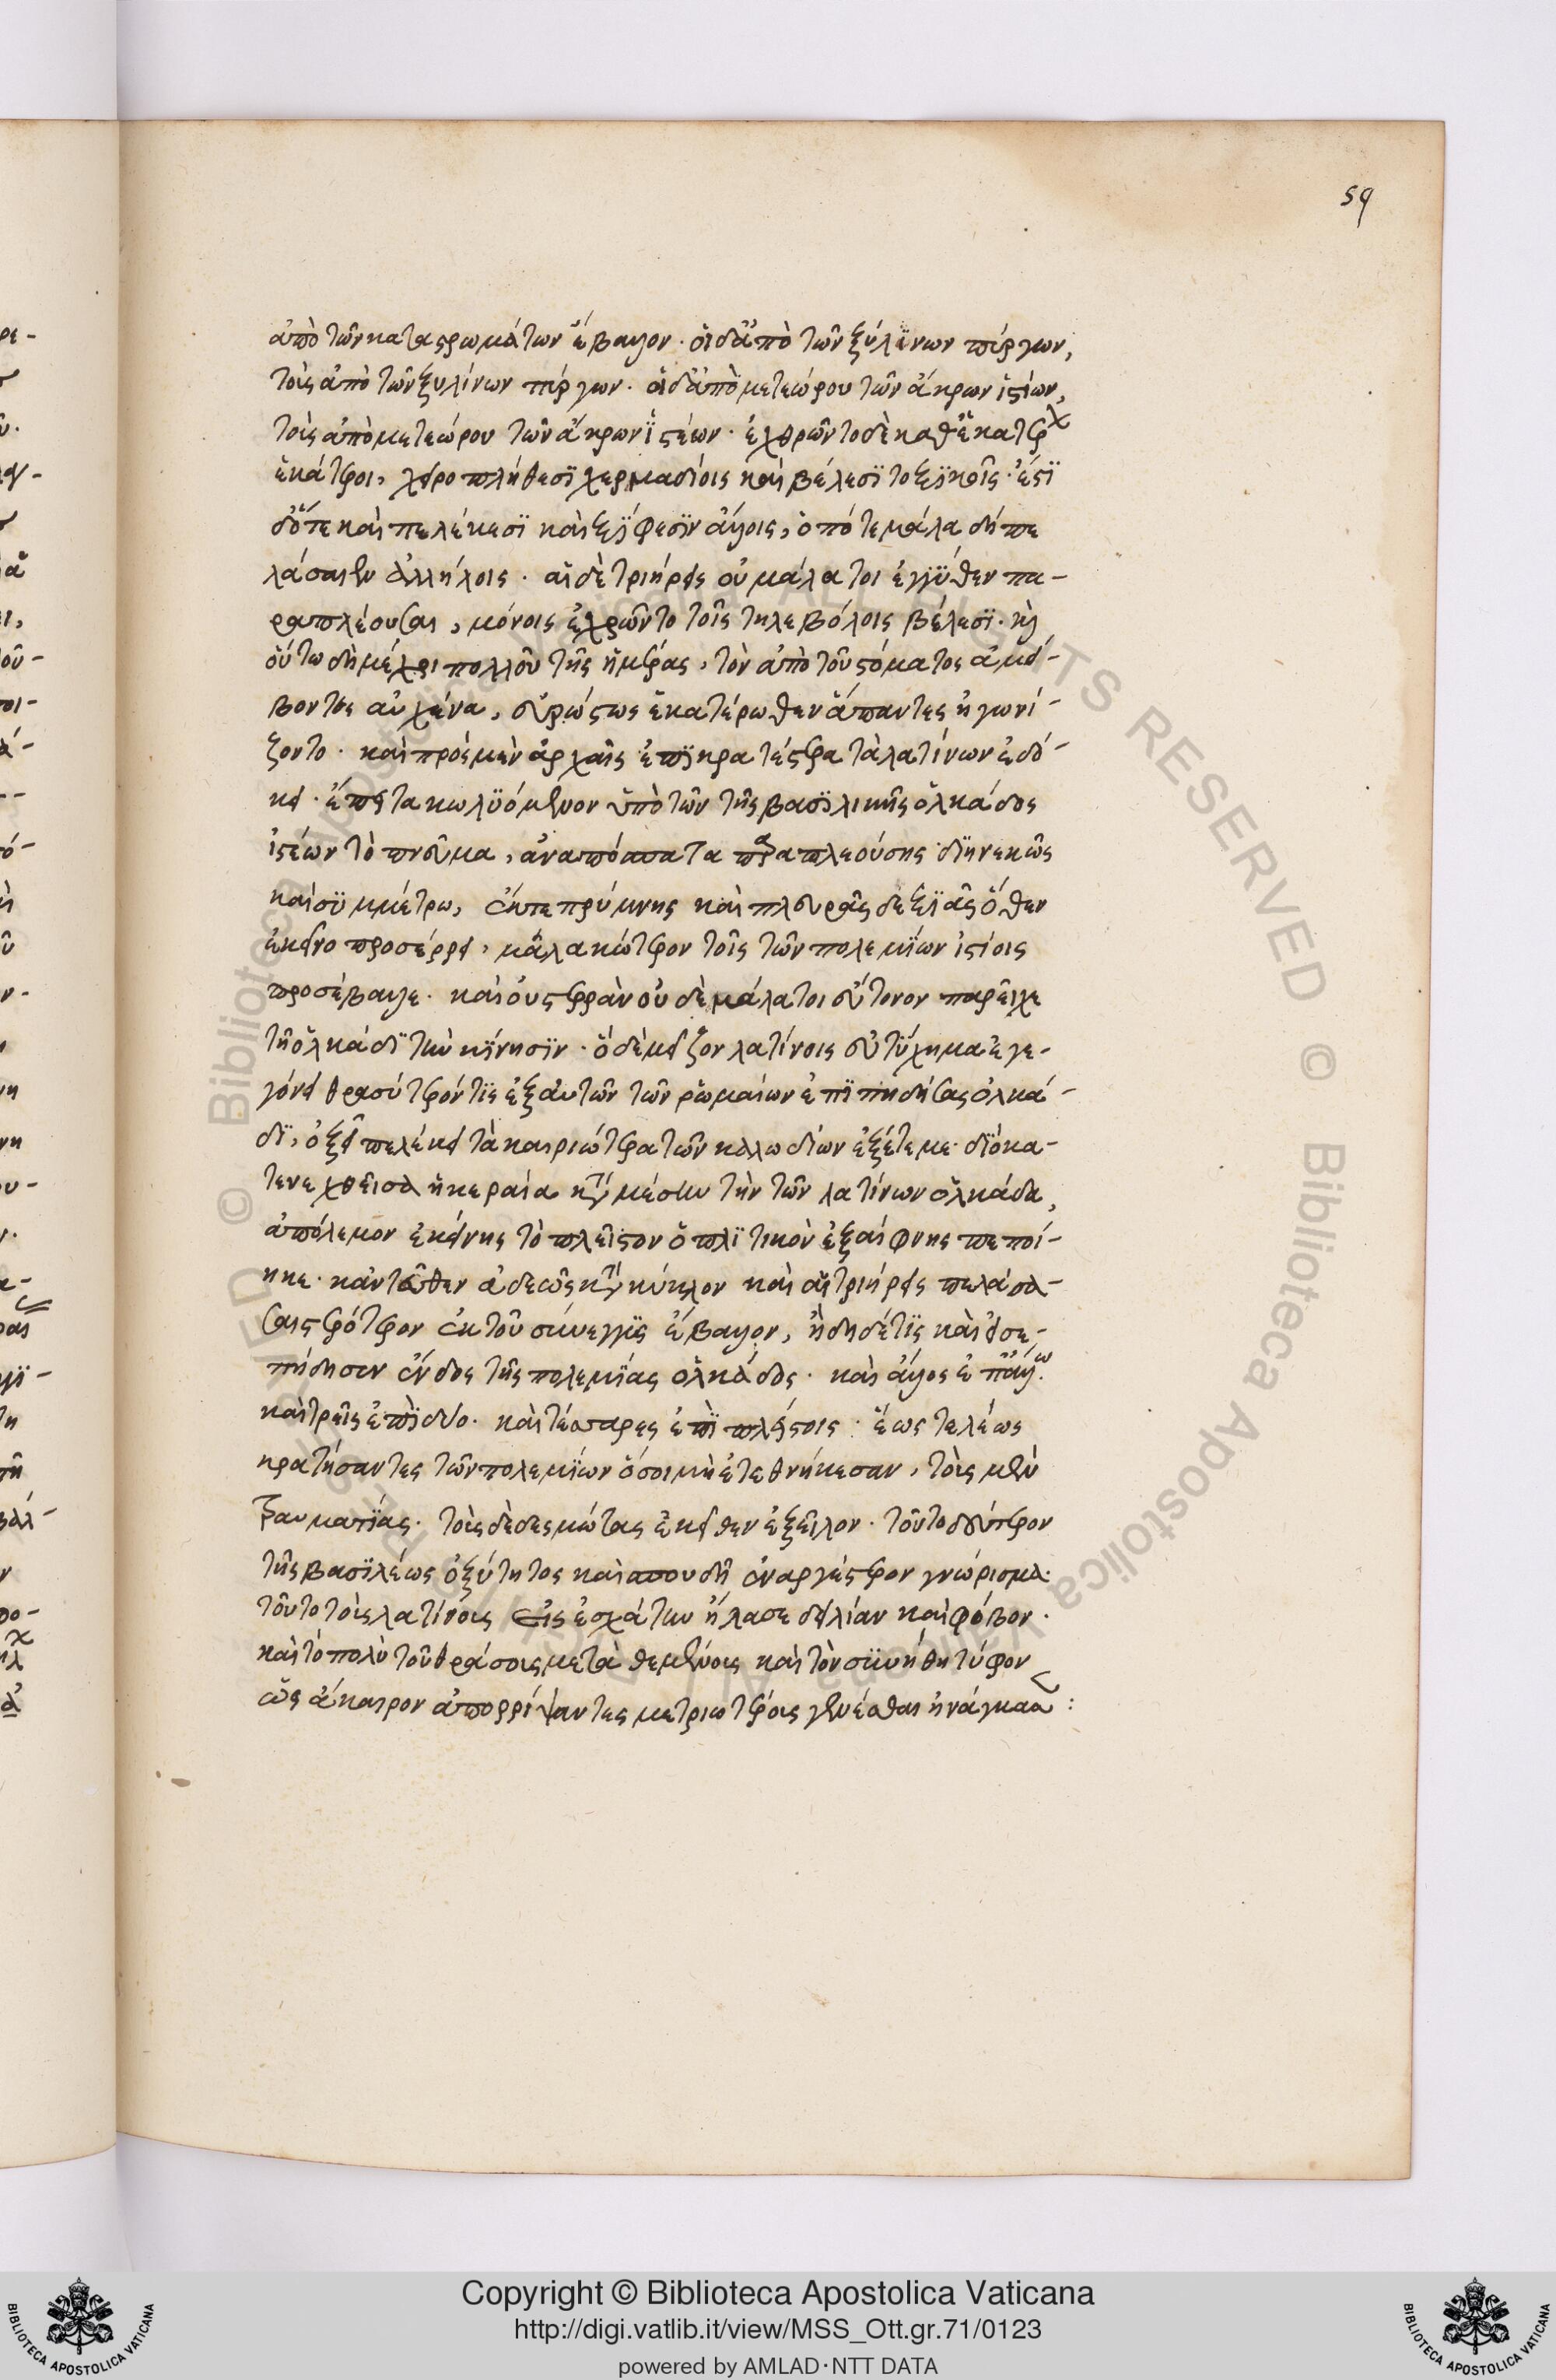 59
ἀπὸ τῶν καταστρωμάτων ἔβαλλον· οἱ δ' ἀπὸ τῶν ξυλίνων πύργων,
τοὺς ἀπὸ τῶν ξυλίνων πύργων· οἱ δ' ἀπὸ μετεώρου τῶν ἄκρων ἱστίων,
τοὺς ἀπὸ μετεώρου τῶν ἄκρων ἱστίων· ἐχρῶντο δὲ καθ' ἑκατέρων
ἑκάτεροι, χειροπλήθεσϊ χερμαδίοις καὶ βέλεσϊ τοξϊκοῖς· ἔστϊ
δ' ὅτε καὶ πελέκεσϊ καὶ ξϊφεσϊν ἄλλοις, ὁπότε μάλα δή πε
λάσαιεν ἀλλήλοις· αἱ δὲ τριήρεις οὐ μάλα τοι ἐγγύθεν πα-
ραπλέουσαι, μόνοις ἐχρῶντο τοῖς τηλεβόλοις βέλεσϊ· κὶ
οὕτω δὴ μέχρι πολλοῦ τῆς ἡμέρας, τὸν ἀπὸ τοῦ στόματος ἀμεί-
βοντες αὐχένα, εὐρώστως ἑκατέρωθεν ἅπαντες ἠγωνί-
ζοντο· καὶ πρὸς μὲν ἀρχαῖς ἐπϊκρατέστερα τὰ λατίνων ἐδό-
κει· ἔπειτα κωλϋόμενον ὑπὸ τῶν τῆς βασϊλικῆς ὁλκάδος
ἱστίων τὸ πνεῦμα, ἀναπόσπαστα παραπλεούσης διηνεκῶς
καὶ συμμέτρως, ἔκ τε πρύμνης καὶ πλευρᾶς δεξϊᾶς ὅθεν
ἐκεῖνο προσέρρει, μαλακώτερον τοῖς τῶν πολεμϊων ἱστίοις
προσέβαλλε· καὶ οὐ στερρὰν οὐδὲ μάλα τοι εὔτονον παρεῖχε
τῇ ὁλκάδϊ τὴν κίνησϊν· ὃ δὲ μεῖζον λατίνοις εὐτύχημα ἐγε-
γόνει θρασύτερόν τϊς ἐξ αὐτῶν τῶν ῥωμαίων ἐπϊπηδήσας ὁλκά-
δϊ, ὀξεῖ πελέκει τὰ καιριώτερα τῶν καλωδίων ἐξέτεμε· δϊὸ κα-
τενεχθεῖσα ἡ κεραία κατὰ μέσην τὴν τῶν λατίνων ὁλκάδα,
ἀπόλεμον ἐκείνης τὸ πλεῖστον ὁπλϊτικὸν ἐξαίφνης πεποί-
ηκε· κἀντεῦθεν ἀδεῶς κατὰ κύκλον καὶ αἱ τριήρεις πελάσα-
σαι στερρότερον ἐκ τοῦ σύνεγγυς ἔβαλλον, ἤδη δέ τϊς καὶ εἰσε-
πήδησεν ἔνδος τῆς πολεμίας ὁλκάδος· καὶ ἄλλος ἐπ' ἄλλῳ·
καὶ τρεῖς ἐπϊ δύο· καὶ τέσσαρες ἐπϊ πλείστοις· ἕως τελέως
κρατήσαντες τῶν πολεμϊων ὅσοι μὴ ἐτεθνήκεσαν, τοὺς μὲν
τραυματϊας· τοὺς δὲ δεσμώτας ἐκεῖθεν ἐξεῖλον· τοῦτο δεύτερον
τῆς βασϊλέως ὀξύτητος καὶ σπουδῆς ἐναργέστερον γνώρισμα·
τοῦτο τοὺς λατίνους εἰς ἐσχάτην ἤλασε δειλίαν καὶ φόβον·
καὶ τὸ πολὺ τοῦ θράσους μεταθεμένους καὶ τὸν συνήθη τύφον
ὡς ἄκαιρον ἀπορρίψαντες μετριωτέρους γενέσθαι ἠνάγκασε: